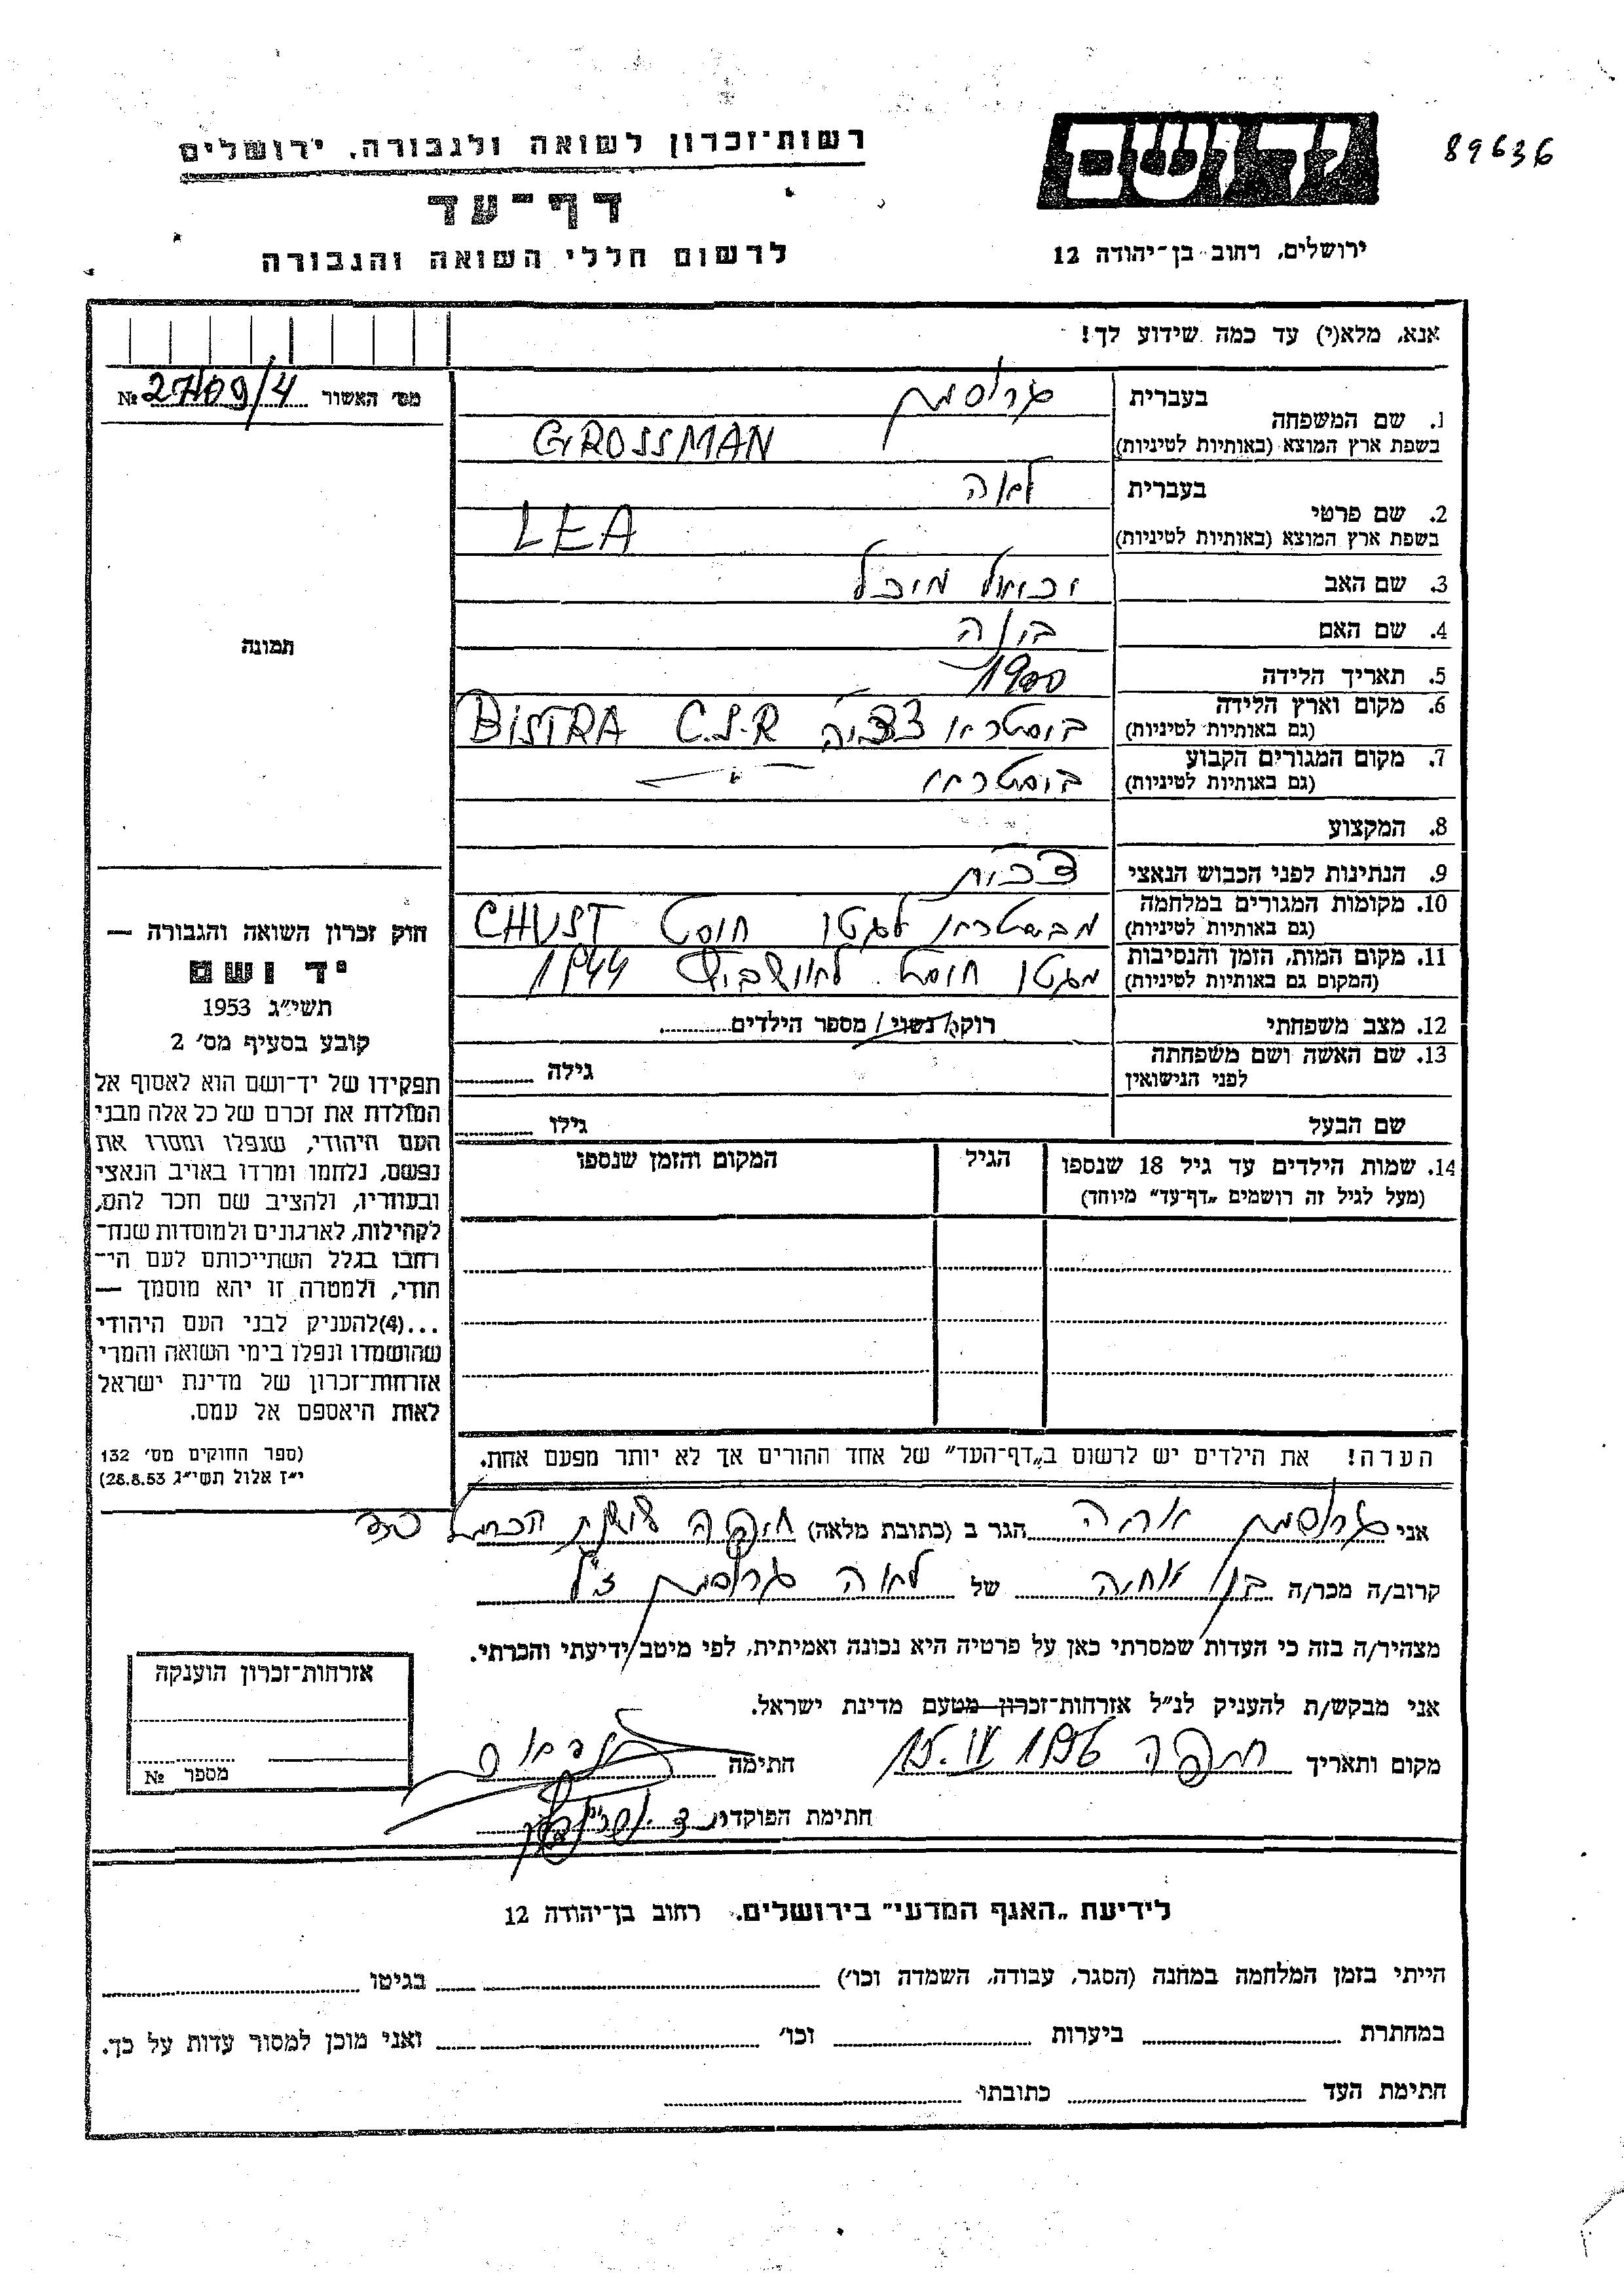 89636
יד ושם
ירושלים, רחוב בן־יהודה 12
רשות־זכרון לשואה ולגבורה, ירושלים
דף־עד
לרשום חללי השואה והגבורה
אנא, מלא(י) עד כמה שידוע לך!
מס׳ האשור 27109/4 №
תמונה
1. שם המשפחה
בעברית גרוסמן
בשפת ארץ המוצא (באותיות לטיניות) GROSSMAN
2. שם פרטי
בעברית לאה
בשפת ארץ המוצא (באותיות לטיניות) LEA
3. שם האב מיכל
4. שם האם
5. תאריך הלידה 1900
6. מקום וארץ הלידה
(גם באותיות לטיניות) ביסטרא BISTRA C.S.R
7. מקום המגורים הקבוע
(גם באותיות לטיניות) ביסטרא
8. המקצוע
9. הנתינות לפני הכבוש הנאצי
10. מקומות המגורים במלחמה
(גם באותיות לטיניות) מביסטרא לגטו חוסט CHUST
11. מקום המות, הזמן והנסיבות
(המקום גם באותיות לטיניות) מגטו חוסט לאושביץ 1944
12. מצב משפחתי רוקה/נשוי/מספר הילדים
13. שם האשה ושם משפחתה
לפני הנישואין גילה
שם הבעל גילו
14. שמות הילדים עד גיל 18 שנספו
(מעל לגיל זה רושמים „דף־עד” מיוחד)
הגיל
המקום והזמן שנספו
חוק זכרון השואה והגבורה —
יד ושם
תשי״ג 1953
קובע בסעיף מס׳ 2
תפקידו של יד־ושם הוא לאסוף אל
המולדת את זכרם של כל אלה מבני
העם היהודי, שנפלו ומסרו את
נפשם, נלחמו ומרדו באויב הנאצי
ובעוזריו, ולהציב שם וזכר להם,
לקהילות, לארגונים ולמוסדות שנח־
רבו בגלל השתייכותם לעם הי־
הודי, ולמטרה זו יהא מוסמך —
...(4) להעניק לבני העם היהודי
שהושמדו ונפלו בימי השואה והמרי
אזרחות־זכרון של מדינת ישראל
לאות היאספם אל עמם.
(ספר החוקים מס׳ 132
י״ז אלול תשי״ג 28.8.53)
הערה! את הילדים יש לרשום ב„דף־העד” של אחד ההורים אך לא יותר מפעם אחת.
אני גרוסמן הגר ב (כתובת מלאה) חיפה הכרמל
קרוב/ה מכר/ה בן של לאה גרוסמן ז״ל
מצהיר/ה בזה כי העדות שמסרתי כאן על פרטיה היא נכונה ואמיתית, לפי מיטב ידיעתי והכרתי.
אני מבקש/ת להעניק לנ״ל אזרחות־זכרון מטעם מדינת ישראל.
מקום ותאריך חיפה 15.IV 1956 חתימה
חתימת הפוקד
אזרחות־זכרון הוענקה
מספר №
לידיעת „האגף המדעי” בירושלים, רחוב בן־יהודה 12
הייתי בזמן המלחמה במחנה (הסגר, עבודה, השמדה וכו׳) בגיטו
במחתרת ביערות וכו׳ ואני מוכן למסור עדות על כך.
חתימת העד כתובתו